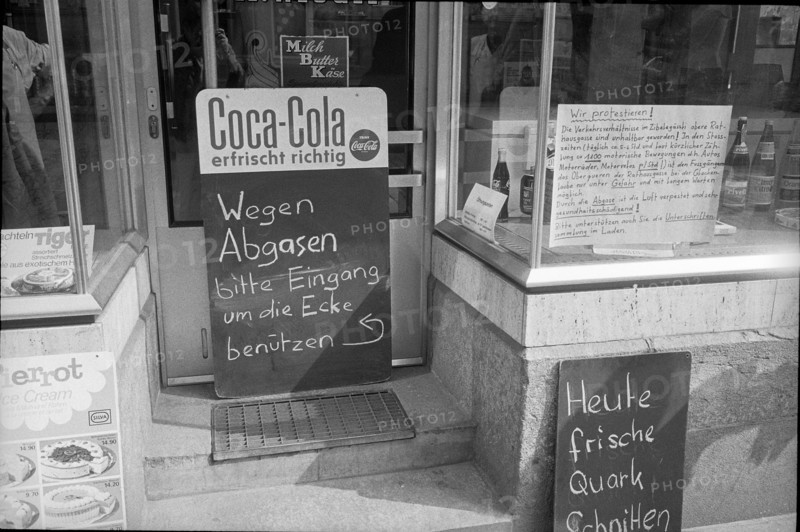 Milch
Butter
Käse
Coca-Cola
erfrischt richtig
DRINK
Coca-Cola
Wegen
Abgasen
bitte Eingang
um die Ecke
benützen
Wir protestieren!
Die Verkehrsverhältnisse im
obere Rat-
hausgasse sind unhaltbar geworden! In den Stoss-
zeiten (täglich
Std und laut kürzlicher Zäh-
lung ca 1100 motorische Bewegungen d.h. Autos
Motorräder, Motovelos p/Std) ist den Fussgängern
das Überqueren der Rathausgasse bei der Glocken-
laube nur unter Gefahr und mit langem Warten
möglich.
Durch die Abgase ist die Luft verpestet und sehr
gesundheitsschädigend!
Bitte unterstützen auch Sie die Unterschriften-
sammlung im Laden.
Pierrot
Ice Cream
14.90
14.90
9.70
14.90
Heute
frische
Quark
Schnitten
PHOTO12